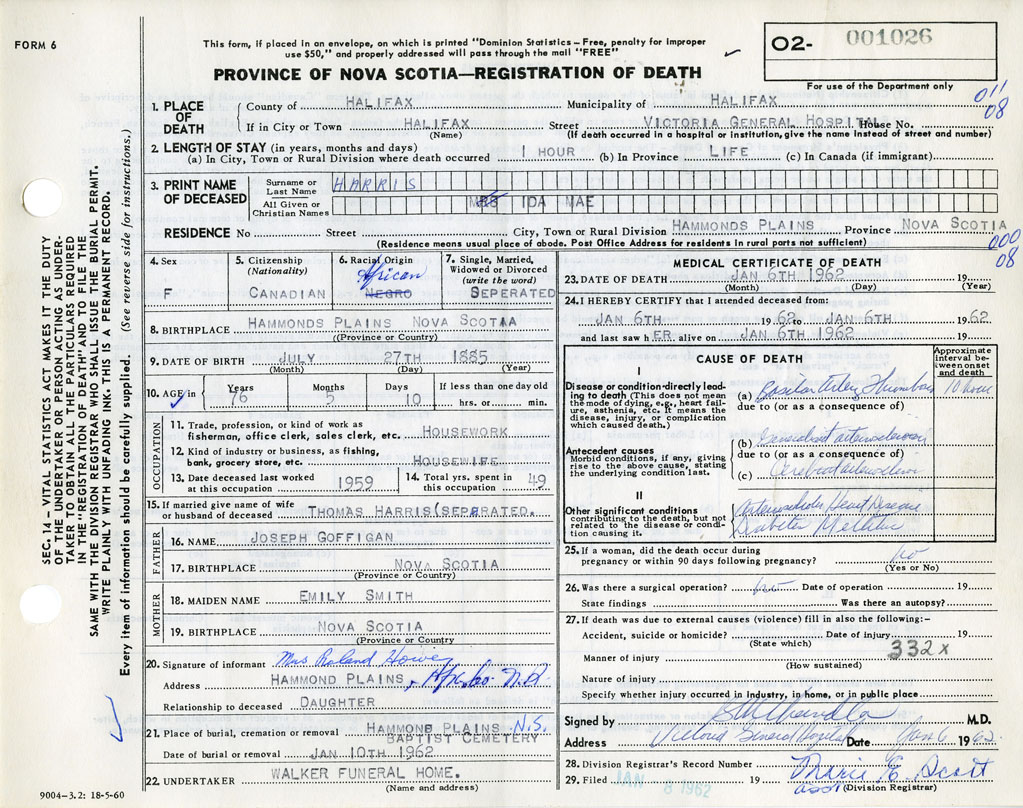 FORM 6
This form, if placed in an envelope, on which is printed "Dominion Statistics – Free, penalty for improper
use $50," and properly addressed will pass through the mail "FREE"
O2- 001026
For use of the Department only
PROVINCE OF NOVA SCOTIA—REGISTRATION OF DEATH
011
08
1. PLACE OF DEATH
County of HALIFAX Municipality of HALIFAX
If in City or Town HALIFAX Street VICTORIA GENERAL HOSPITAL House No.
(Name) (If death occurred in a hospital or institution, give the name instead of street and number)
2. LENGTH OF STAY (in years, months and days)
(a) In City, Town or Rural Division where death occurred 1 HOUR (b) In Province LIFE (c) In Canada (if immigrant)
3. PRINT NAME OF DECEASED
Surname or Last Name HARRIS
All Given or Christian Names MRS IDA MAE
RESIDENCE No Street City, Town or Rural Division HAMMONDS PLAINS Province NOVA SCOTIA
(Residence means usual place of abode. Post Office Address for residents in rural parts not sufficient)
000
08
4. Sex
F
5. Citizenship
(Nationality)
CANADIAN
6. Racial Origin
African
NEGRO
7. Single, Married,
Widowed or Divorced
(write the word)
SEPERATED
8. BIRTHPLACE HAMMONDS PLAINS NOVA SCOTIA
(Province or Country)
9. DATE OF BIRTH JULY 27TH 1885
(Month) (Day) (Year)
10. AGE in
Years Months Days If less than one day old
76 5 10 hrs. or min.
OCCUPATION
11. Trade, profession, or kind of work as
fisherman, office clerk, sales clerk, etc. HOUSEWORK
12. Kind of industry or business, as fishing,
bank, grocery store, etc. HOUSEWIFE
13. Date deceased last worked
at this occupation 1959
14. Total yrs. spent in
this occupation 49
15. If married give name of wife
or husband of deceased THOMAS HARRIS(SEPERATED.
FATHER
16. NAME JOSEPH GOFFIGAN
17. BIRTHPLACE NOVA SCOTIA
(Province or Country)
MOTHER
18. MAIDEN NAME EMILY SMITH
19. BIRTHPLACE NOVA SCOTIA
(Province or Country
20. Signature of informant Mrs Roland Howe
Address HAMMOND PLAINS, Hfx. Co. N.S.
Relationship to deceased DAUGHTER
21. Place of burial, cremation or removal HAMMOND PLAINS N.S.
BAPTIST CEMETERY
Date of burial or removal JAN 10TH 1962
22. UNDERTAKER WALKER FUNERAL HOME.
(Name and address)
9004—3.2: 18-5-60
MEDICAL CERTIFICATE OF DEATH
23. DATE OF DEATH JAN 6TH 1962 19
(Month) (Day) (Year)
24. I HEREBY CERTIFY that I attended deceased from:
JAN 6TH 19 62 to JAN 6TH 19 62
and last saw h ER alive on JAN 6TH 1962 19
CAUSE OF DEATH
Approximate
interval be-
tween onset
and death
I
Disease or condition directly lead-
ing to death (This does not mean
the mode of dying, e.g., heart fail-
ure, asthenia, etc. It means the
disease, injury, or complication
which caused death.)
(a) Basilar Artery Thrombosis 10 hours
due to (or as a consequence of)
(b) Generalised arteriosclerosis
due to (or as a consequence of)
(c) Cerebral arteriosclerosis
Antecedent causes
Morbid conditions, if any, giving
rise to the above cause, stating
the underlying condition last.
II
Other significant conditions
contributing to the death, but not
related to the disease or condi-
tion causing it.
Arteriosclerotic Heart Disease
Diabetes Mellitus
25. If a woman, did the death occur during
pregnancy or within 90 days following pregnancy? no
(Yes or No)
26. Was there a surgical operation? no Date of operation 19
State findings Was there an autopsy?
27. If death was due to external causes (violence) fill in also the following:—
Accident, suicide or homicide? Date of injury 19
(State which)
332x
Manner of injury
(How sustained)
Nature of injury
Specify whether injury occurred in industry, in home, or in public place
Signed by M.D.
Address Victoria General Hospital Date Jan 6 1962
28. Division Registrar's Record Number
29. Filed JAN 8 1962 19 Marie E. Scott
asst (Division Registrar)
SEC. 14 – VITAL STATISTICS ACT MAKES IT THE DUTY
OF THE UNDERTAKER OR PERSON ACTING AS UNDER-
TAKER TO OBTAIN ALL THE PARTICULARS REQUIRED
IN THE "REGISTRATION OF DEATH" AND TO FILE THE
SAME WITH THE DIVISION REGISTRAR WHO SHALL ISSUE THE BURIAL PERMIT.
WRITE PLAINLY WITH UNFADING INK. THIS IS A PERMANENT RECORD.
Every item of information should be carefully supplied. (See reverse side for instructions.)